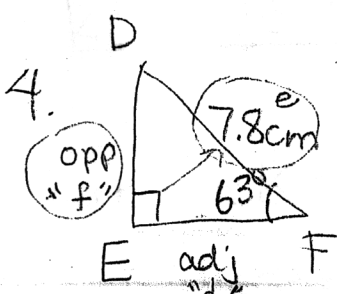 D
4.
e
7.8cm
opp
"f"
63°
E
adj
F
"d"